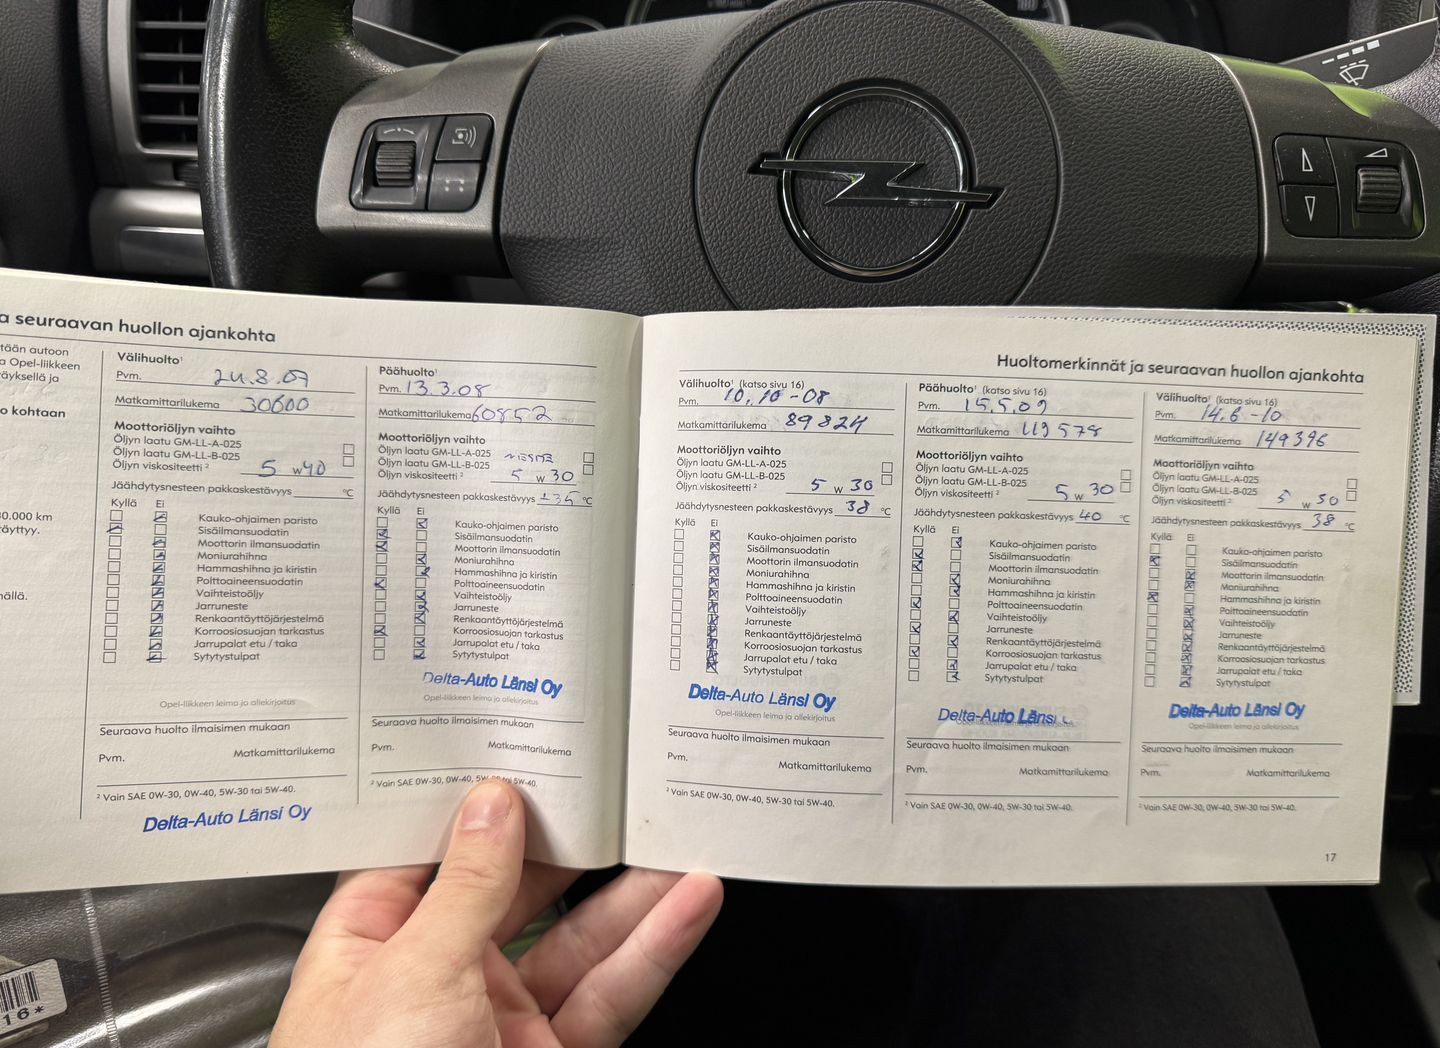 a seuraavan huollon ajankohta
tään autoon
a Opel-liikkeen
äyksellä ja
o kohtaan
30.000 km
äyttyy.
mällä.
Välihuolto¹
Pvm. 24.8.07
Matkamittarilukema 30600
Moottoriöljyn vaihto
Öljyn laatu GM-LL-A-025
Öljyn laatu GM-LL-B-025
Öljyn viskositeetti ² 5 W40
Jäähdytysnesteen pakkaskestävyys °C
Kyllä Ei
Kauko-ohjaimen paristo
Sisäilmansuodatin
Moottorin ilmansuodatin
Moniurahihna
Hammashihna ja kiristin
Polttoaineensuodatin
Vaihteistoöljy
Jarruneste
Renkaantäyttöjärjestelmä
Korroosiosuojan tarkastus
Jarrupalat etu / taka
Sytytystulpat
Opel-liikkeen leima ja allekirjoitus
Seuraava huolto ilmaisimen mukaan
Pvm. Matkamittarilukema
² Vain SAE 0W-30, 0W-40, 5W-30 tai 5W-40.
Delta-Auto Länsi Oy
Päähuolto¹
Pvm. 13.3.08
Matkamittarilukema 60852
Moottoriöljyn vaihto
Öljyn laatu GM-LL-A-025
Öljyn laatu GM-LL-B-025
Öljyn viskositeetti ² 5 W 30
Jäähdytysnesteen pakkaskestävyys ±35 °C
Kyllä Ei
Kauko-ohjaimen paristo
Sisäilmansuodatin
Moottorin ilmansuodatin
Moniurahihna
Hammashihna ja kiristin
Polttoaineensuodatin
Vaihteistoöljy
Jarruneste
Renkaantäyttöjärjestelmä
Korroosiosuojan tarkastus
Jarrupalat etu / taka
Sytytystulpat
Delta-Auto Länsi Oy
Opel-liikkeen leima ja allekirjoitus
Seuraava huolto ilmaisimen mukaan
Pvm. Matkamittarilukema
² Vain SAE 0W-30, 0W-40, 5W-30 tai 5W-40.
Huoltomerkinnät ja seuraavan huollon ajankohta
Välihuolto¹ (katso sivu 16)
Pvm. 10.10-08
Matkamittarilukema 89824
Moottoriöljyn vaihto
Öljyn laatu GM-LL-A-025
Öljyn laatu GM-LL-B-025
Öljyn viskositeetti ² 5 W 30
Jäähdytysnesteen pakkaskestävyys 38 °C
Kyllä Ei
Kauko-ohjaimen paristo
Sisäilmansuodatin
Moottorin ilmansuodatin
Moniurahihna
Hammashihna ja kiristin
Polttoaineensuodatin
Vaihteistoöljy
Jarruneste
Renkaantäyttöjärjestelmä
Korroosiosuojan tarkastus
Jarrupalat etu / taka
Sytytystulpat
Delta-Auto Länsi Oy
Opel-liikkeen leima ja allekirjoitus
Seuraava huolto ilmaisimen mukaan
Pvm. Matkamittarilukema
² Vain SAE 0W-30, 0W-40, 5W-30 tai 5W-40.
Päähuolto¹ (katso sivu 16)
Pvm. 15.5.09
Matkamittarilukema 119578
Moottoriöljyn vaihto
Öljyn laatu GM-LL-A-025
Öljyn laatu GM-LL-B-025
Öljyn viskositeetti ² 5 W 30
Jäähdytysnesteen pakkaskestävyys 40 °C
Kyllä Ei
Kauko-ohjaimen paristo
Sisäilmansuodatin
Moottorin ilmansuodatin
Moniurahihna
Hammashihna ja kiristin
Polttoaineensuodatin
Vaihteistoöljy
Jarruneste
Renkaantäyttöjärjestelmä
Korroosiosuojan tarkastus
Jarrupalat etu / taka
Sytytystulpat
Delta-Auto Länsi
Seuraava huolto ilmaisimen mukaan
Pvm. Matkamittarilukema
² Vain SAE 0W-30, 0W-40, 5W-30 tai 5W-40.
Välihuolto¹ (katso sivu 16)
Pvm. 14.6-10
Matkamittarilukema 149396
Moottoriöljyn vaihto
Öljyn laatu GM-LL-A-025
Öljyn laatu GM-LL-B-025
Öljyn viskositeetti ² 5 W 30
Jäähdytysnesteen pakkaskestävyys 38 °C
Kyllä Ei
Kauko-ohjaimen paristo
Sisäilmansuodatin
Moottorin ilmansuodatin
Moniurahihna
Hammashihna ja kiristin
Polttoaineensuodatin
Vaihteistoöljy
Jarruneste
Renkaantäyttöjärjestelmä
Korroosiosuojan tarkastus
Jarrupalat etu / taka
Sytytystulpat
Delta-Auto Länsi Oy
Opel-liikkeen leima ja allekirjoitus
Seuraava huolto ilmaisimen mukaan
Pvm. Matkamittarilukema
² Vain SAE 0W-30, 0W-40, 5W-30 tai 5W-40.
17
16*